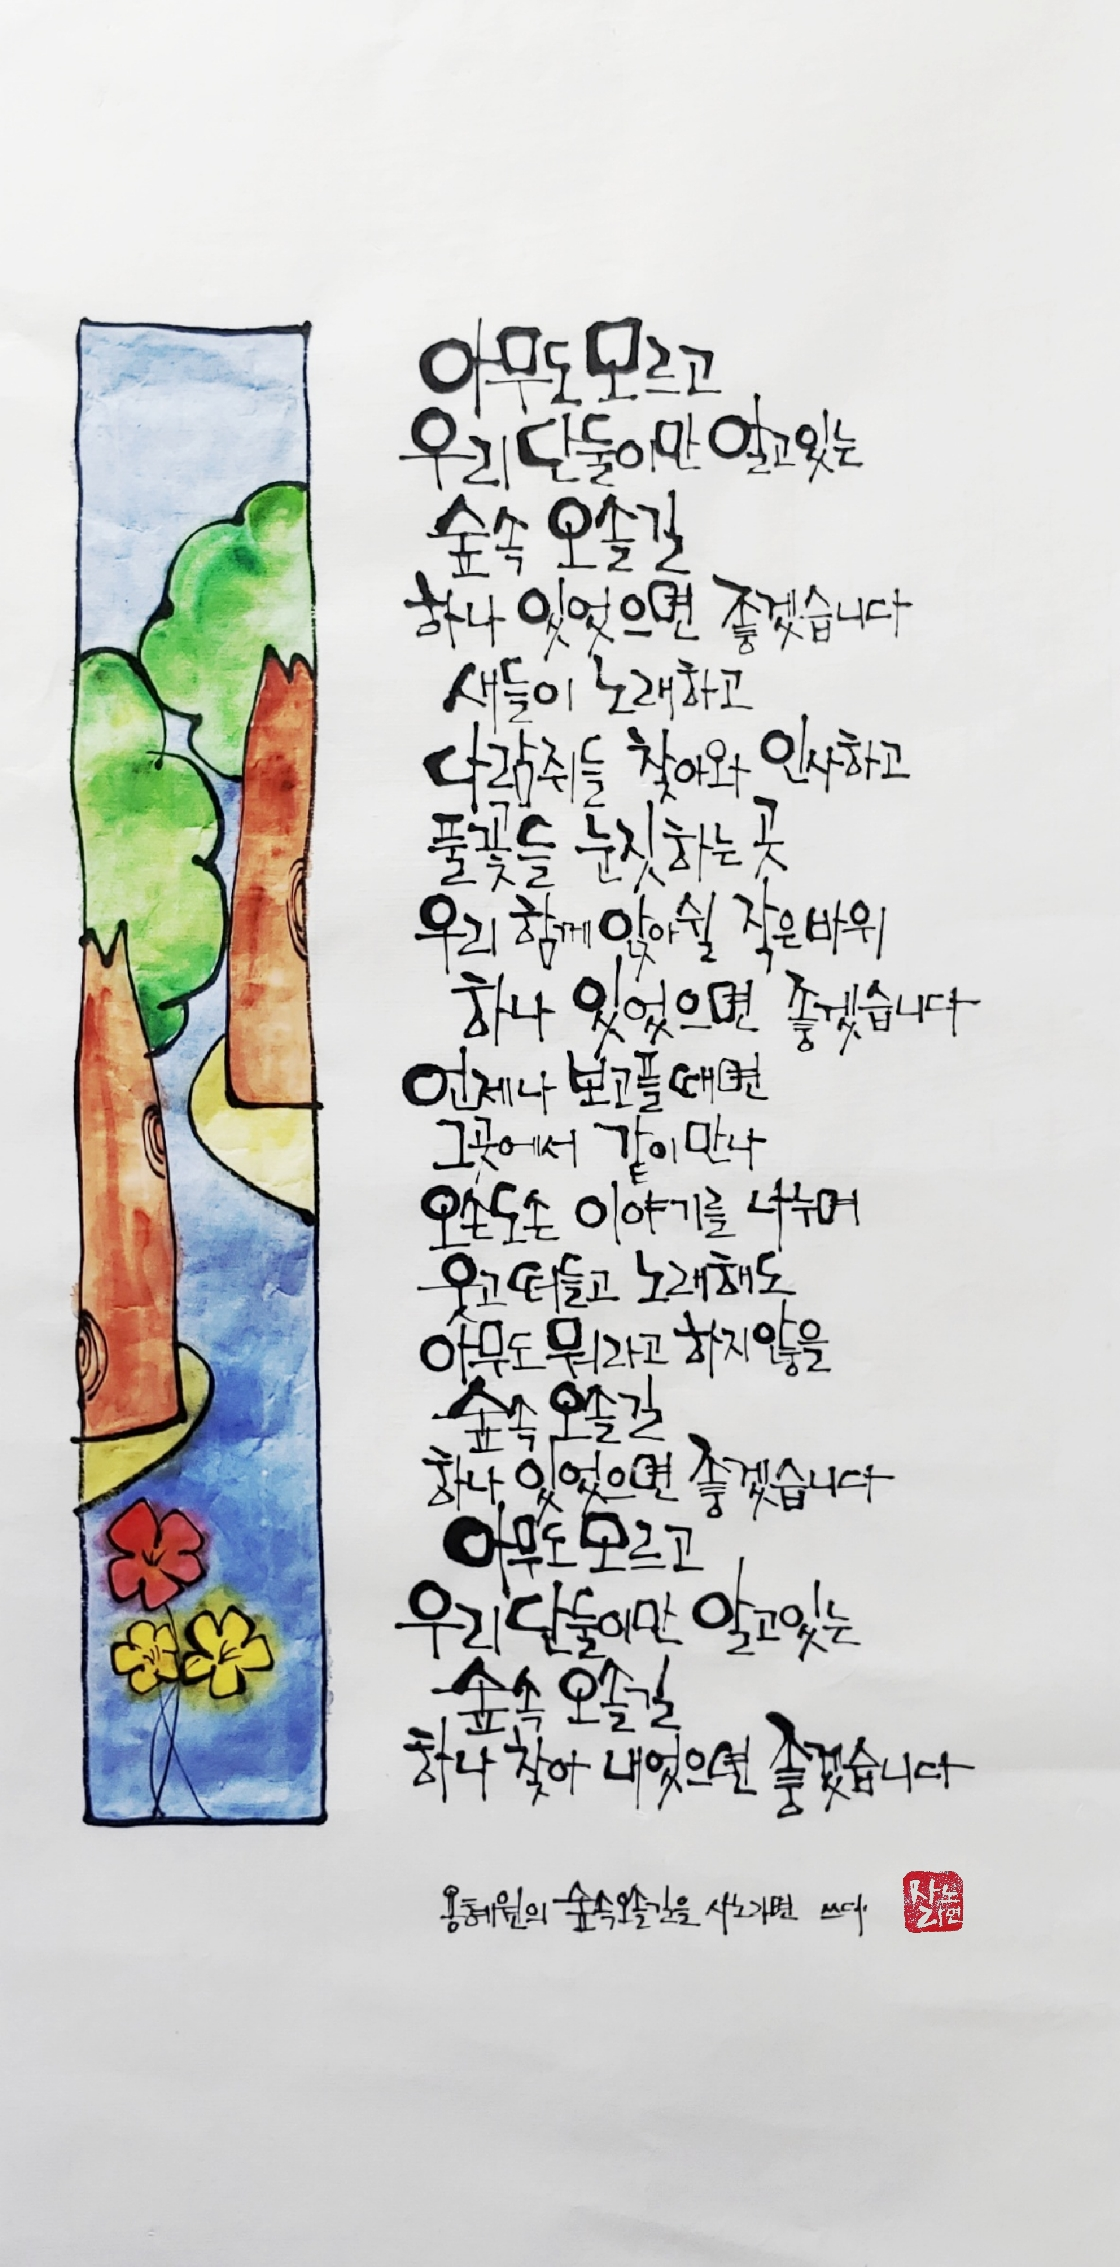 아무도 모르고
우리 단둘이만 알고 있는
숲속 오솔길
하나 있었으면 좋겠습니다
새들이 노래하고
다람쥐들 찾아와 인사하고
풀꽃들 눈짓하는 곳
우리 함께 앉아 쉴 작은 바위
하나 있었으면 좋겠습니다
언제나 보고플 때면
그곳에서 같이 만나
오손도손 이야기를 나누며
웃고 떠들고 노래해도
아무도 뭐라고 하지 않을
숲속 오솔길
하나 있었으면 좋겠습니다
아무도 모르고
우리 단둘이만 알고 있는
숲속 오솔길
하나 찾아 내었으면 좋겠습니다
용혜원의 숲속오솔길을 사노라면 쓰다
사노라면